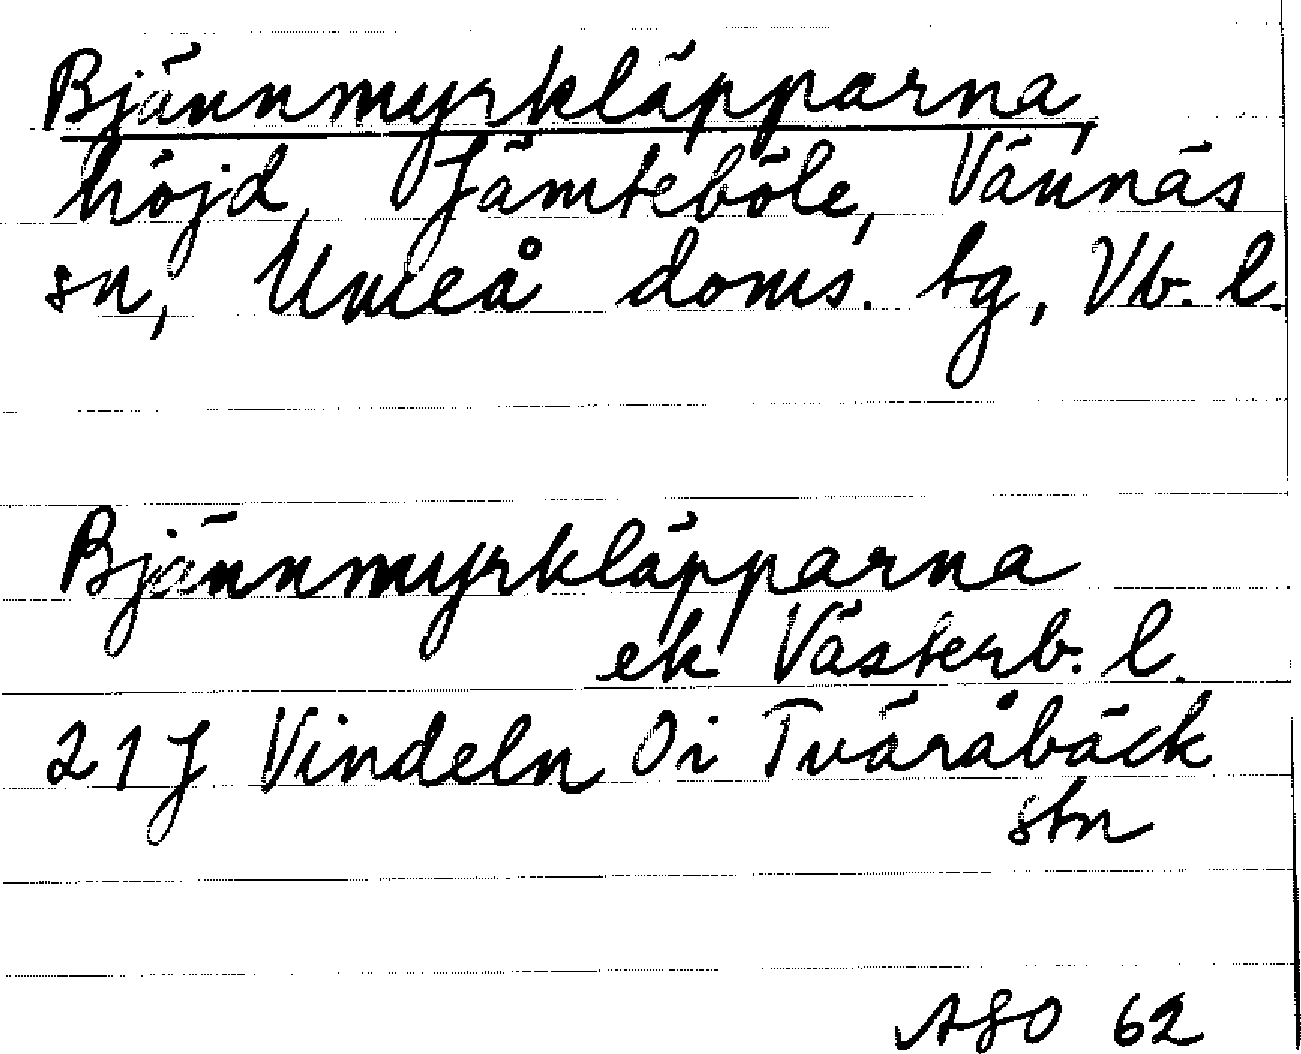 Bjännmyrkläpparna,
höjd, Jämteböle, Vännäs
sn, Umeå doms. tg, Vb. l.
Bjännmyrkläpparna
ek Västerb. l.
21J Vindeln 0i Tväråbäck
stn
ASO 62